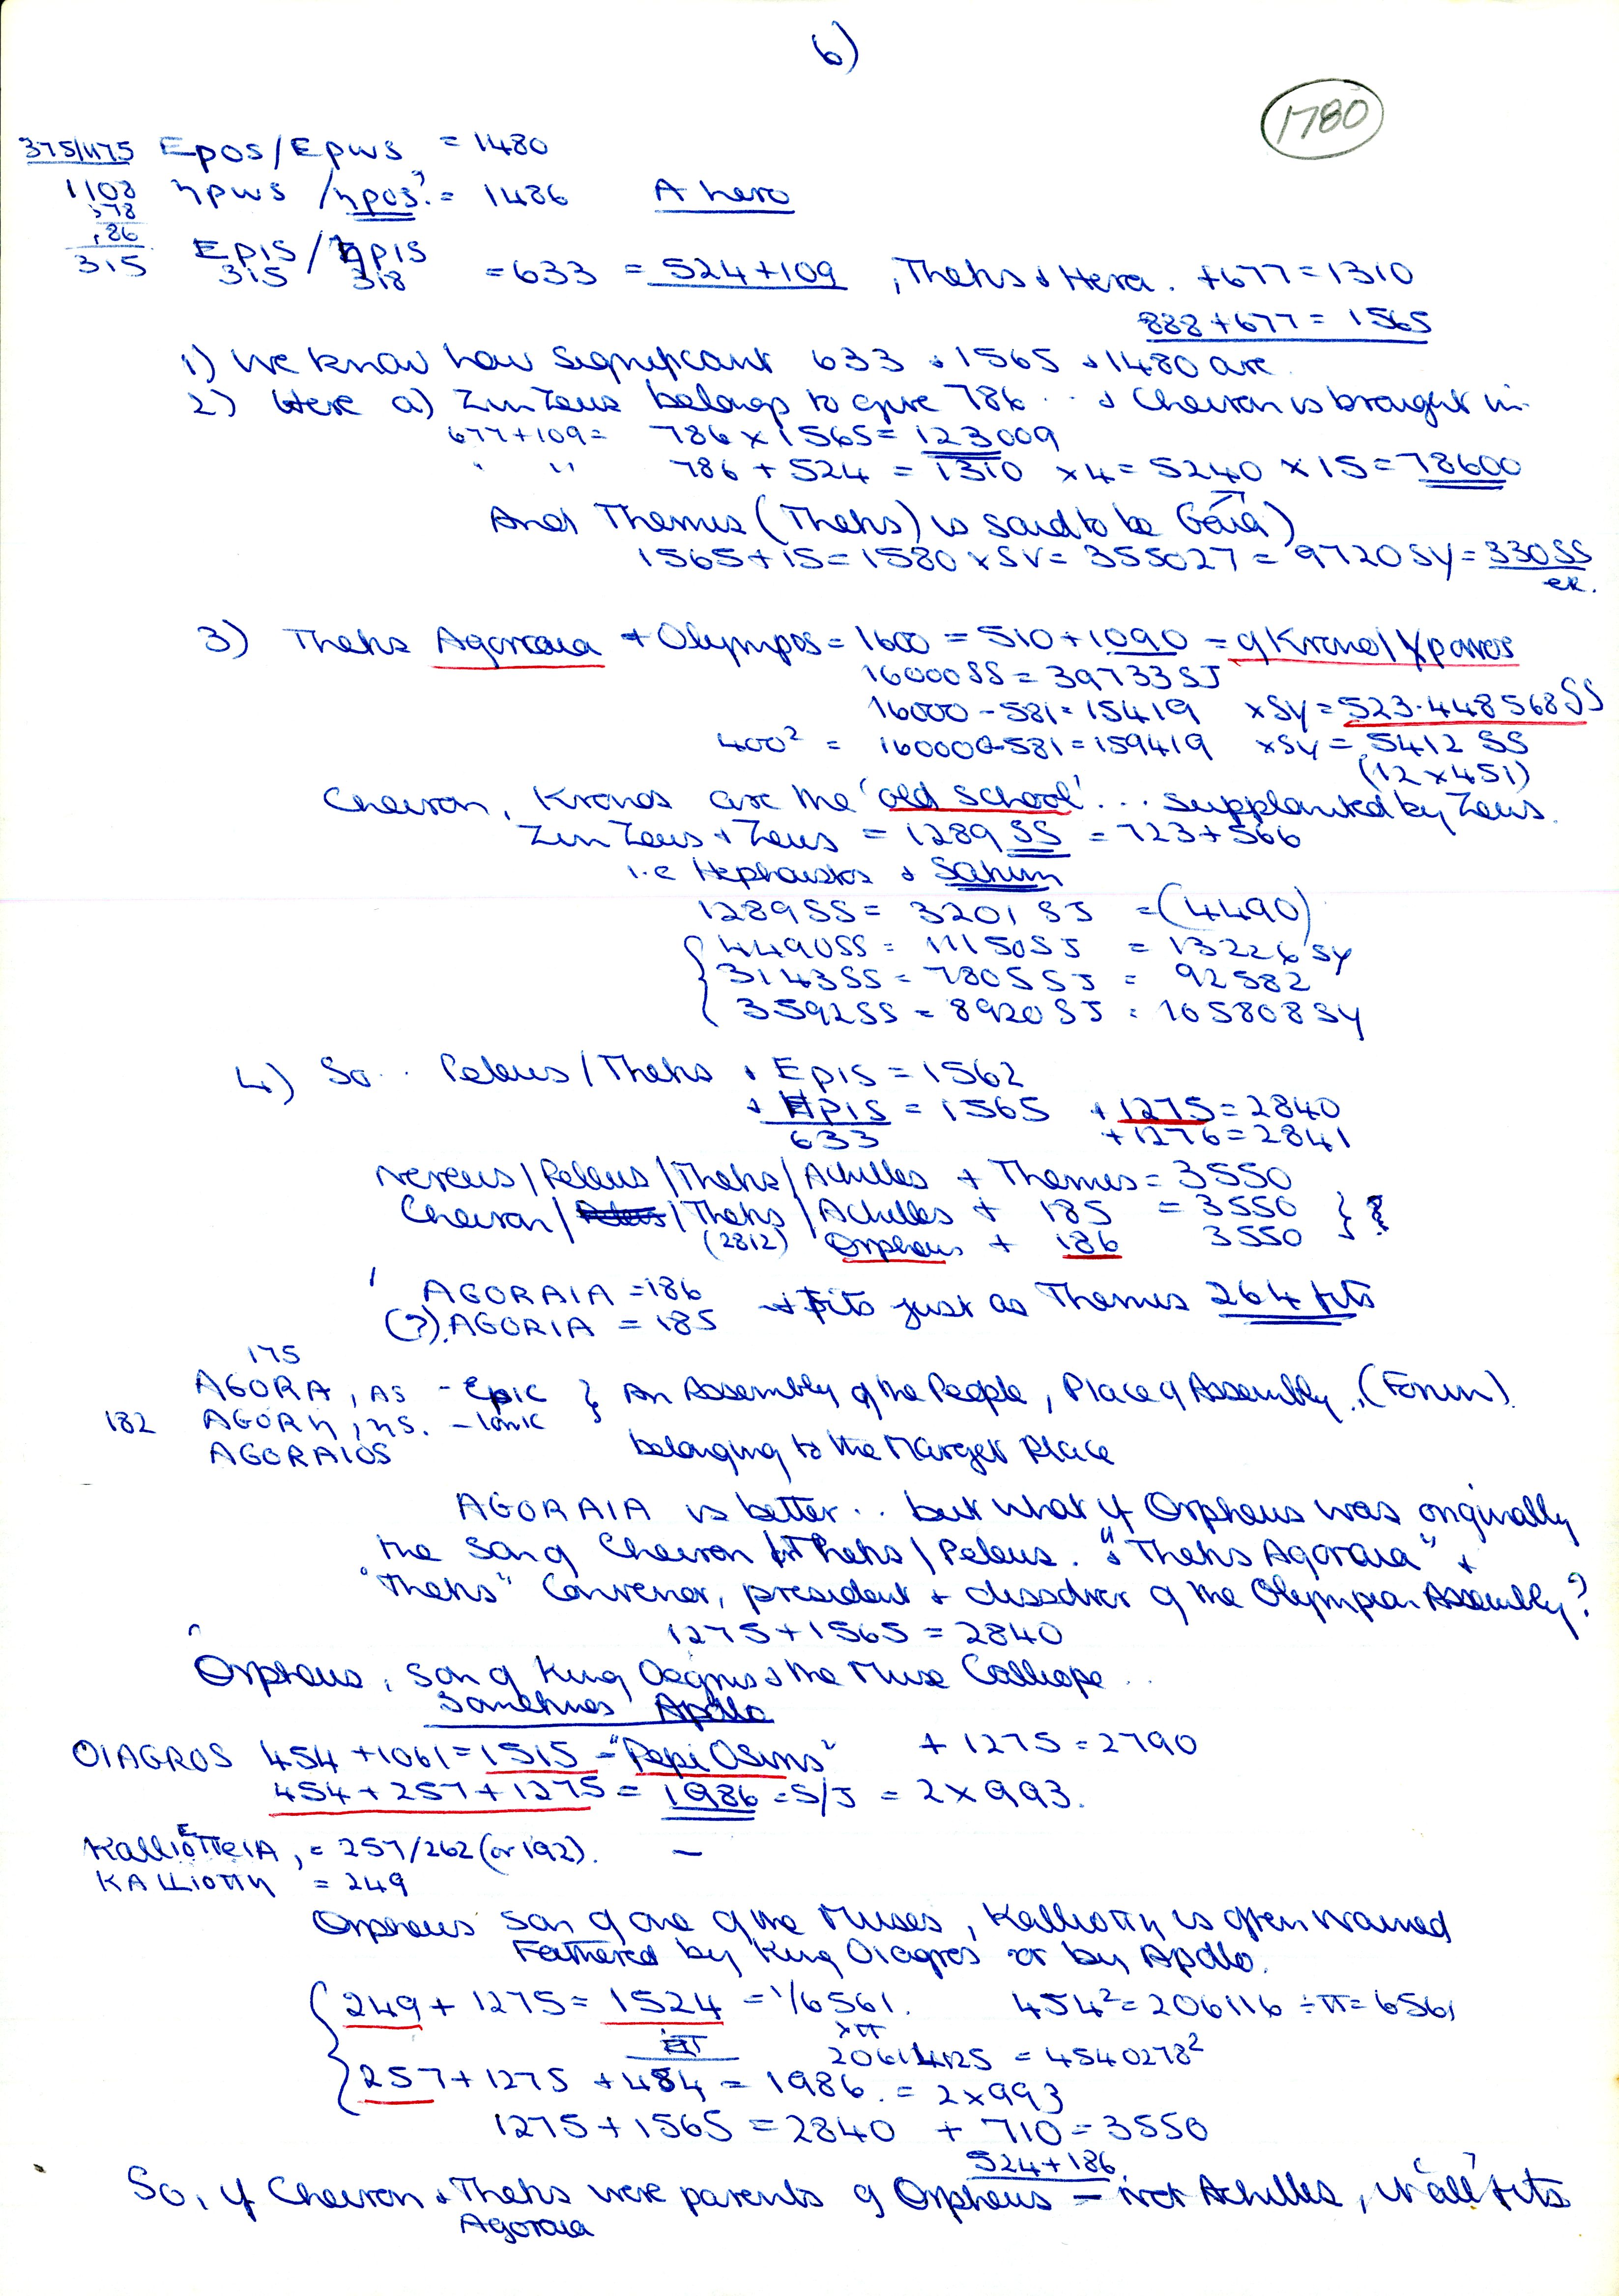 6)
1780
375/1175 Epos/Epws = 1480
1108 ηpws /ηpos? = 1486 A hero
378
.86
315 Epis/ηpis
315 318 = 633 = 524+109, Thetis & Hera. +677=1310
888+677=1565
1) We know how significant 633 & 1565 & 1480 are
2) Here a) Zin Zeus belongs to give 786 .. & Cheiron is brought in
677+109= 786 x 1565 = 123009
" " 786 + 524 = 1310 x4= 5240 x 15 = 78600
And Themis (Thetis) is said to be Gaia)
1565+15=1580 x SV= 355027 = 9720 SY= 330 SS
ex.
3) Thetis Agoraia + Olympos = 1600 = 510+1090 = g Krono/Xpovos
16000 SS = 39733 SJ
16000-581=15419 xSy = 523.448568 SS
400² = 160000-581=159419 xSy = 5412 SS
(12 x 451)
Cheiron, Kronos are the 'old school' ... supplanted by Zeus.
Zin Zeus & Zeus = 1289 SS = 723+566
i.e Hephaistos & Saturn
1289 SS = 3201 SJ = (4490)
4490SS = 11150SJ = 13226 SY
3143SS = 7805 SJ = 92582
3592SS = 8920 SJ = 105808 SY
4) So .. Peleus/Thetis & Epis = 1562
& Hpis = 1565 +1275=2840
633 +1276=2841
Nereus/Peleus/Thetis/Achilles + Themis = 3550
Cheiron/Peleus/Thetis/Achilles + 185 = 3550 } ?
(2812) Orpheus + 186 3550
AGORAIA = 186 & Fits just as Themis 264 fits
(?) AGORIA = 185
175
AGORA, AS - Epic } An Assembly of the People, Place of Assembly, (Forum)
182 AGORη, ηS. - Ionic
AGORAIOS belonging to the Market Place
AGORAIA is better .. but what if Orpheus was originally
the son of Cheiron /Thetis/Peleus. "& Thetis Agoraia" +
"Thetis" Convenor, president & dissolver of the Olympian Assembly?
1275+1565 = 2840
Orpheus, son of King Oegrus & the Muse Calliope ..
sometimes Apollo
OIAGROS 454+1061=1515 - "Pepi Osiris" + 1275=2790
454+257+1275= 1986 = S/J = 2x993.
KalliοEπειΑ, = 257/262 (or 192). -
KALLIOπη = 249
Orpheus son of one of the Muses, Kalliοπη is often named
Fathered by King Oiagros or by Apollo.
249 + 1275 = 1524 = 1/6561. 454² = 206116 ÷π= 6561
xπ
20614125 = 4540278²
257+1275+454 = 1986. = 2x993
1275+1565=2840 + 710=3550
524+186
So, if Cheiron & Thetis were parents of Orpheus - not Achilles, it 'all' fits
Agoraia